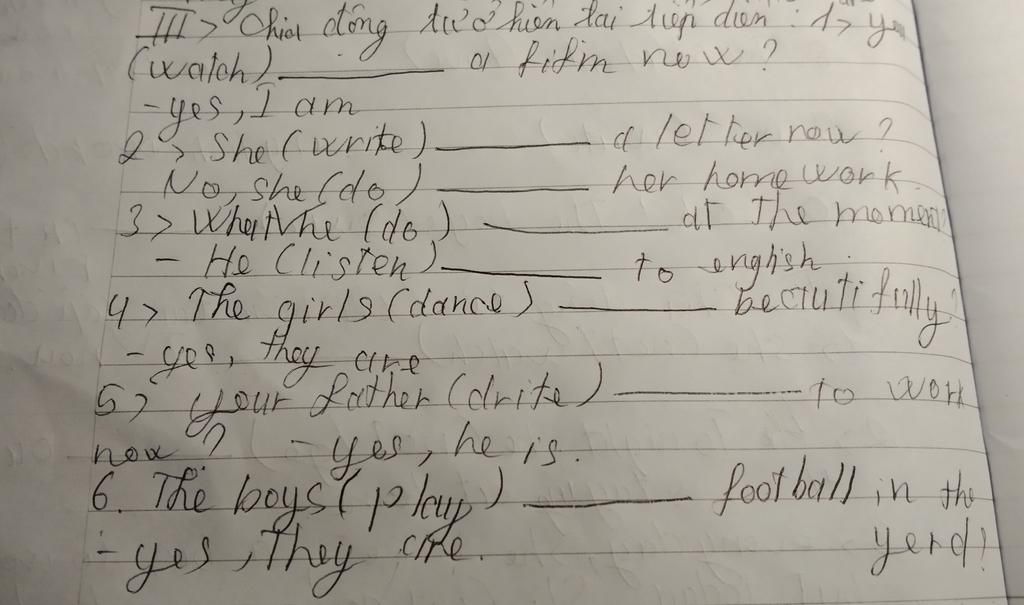 III> Chia động từ ở hiện tại tiếp diễn : 1> you
(watch) ________ a film now ?
- yes, I am
2 > She (write) ________ a letter now ?
No, she (do) ________ her homework.
3 > What he (do) ________ at the moment?
- He (listen) ________ to english.
4 > The girls (dance) ________ beautifully?
- yes, they are
5 > your father (drite) ________ to work
now ? - yes, he is.
6. The boys (play) ________ football in the
- yes, They are. yerd?